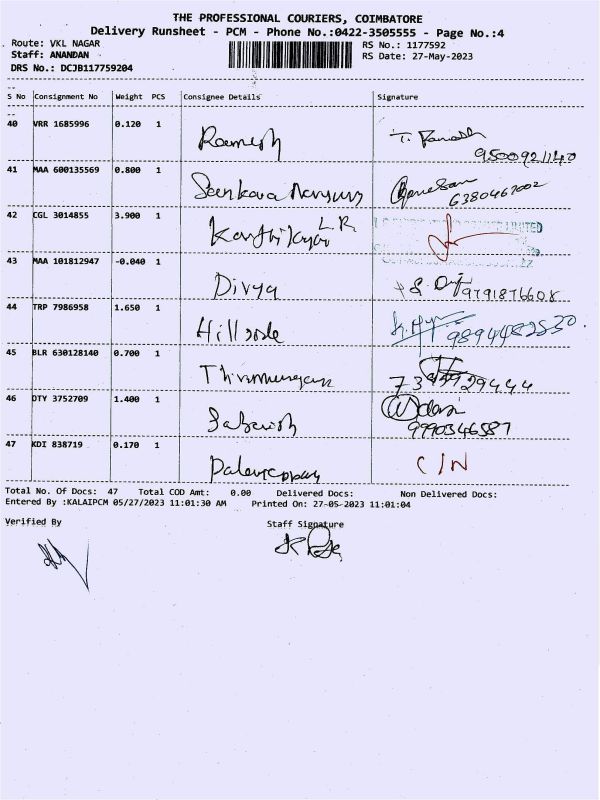 THE PROFESSIONAL COURIERS, COIMBATORE
Delivery Runsheet - PCM - Phone No.:0422-3505555 - Page No.:4
Route: VKL NAGAR RS No.: 1177592
Staff: ANANDAN RS Date: 27-May-2023
DRS No.: DCJB117759204
S No Consignment No Weight PCS Consignee Details Signature
40 VRR 1685996 0.120 1
Ramesh
9500921140
41 MAA 600135569 0.800 1
6380467002
42 CGL 3014855 3.900 1
L.R
LIMITED
43 MAA 101812947 -0.040 1
Divya 9791876608
44 TRP 7986958 1.650 1
Hillside 9894482830
45 BLR 630128140 0.700 1
Thirumurugan
46 DTY 3752709 1.400 1
9990346587
47 KDI 838719 0.170 1
C/N
Total No. Of Docs: 47 Total COD Amt: 0.00 Delivered Docs: Non Delivered Docs:
Entered By :KALAIPCM 05/27/2023 11:01:30 AM Printed On: 27-05-2023 11:01:04
Verified By Staff Signature